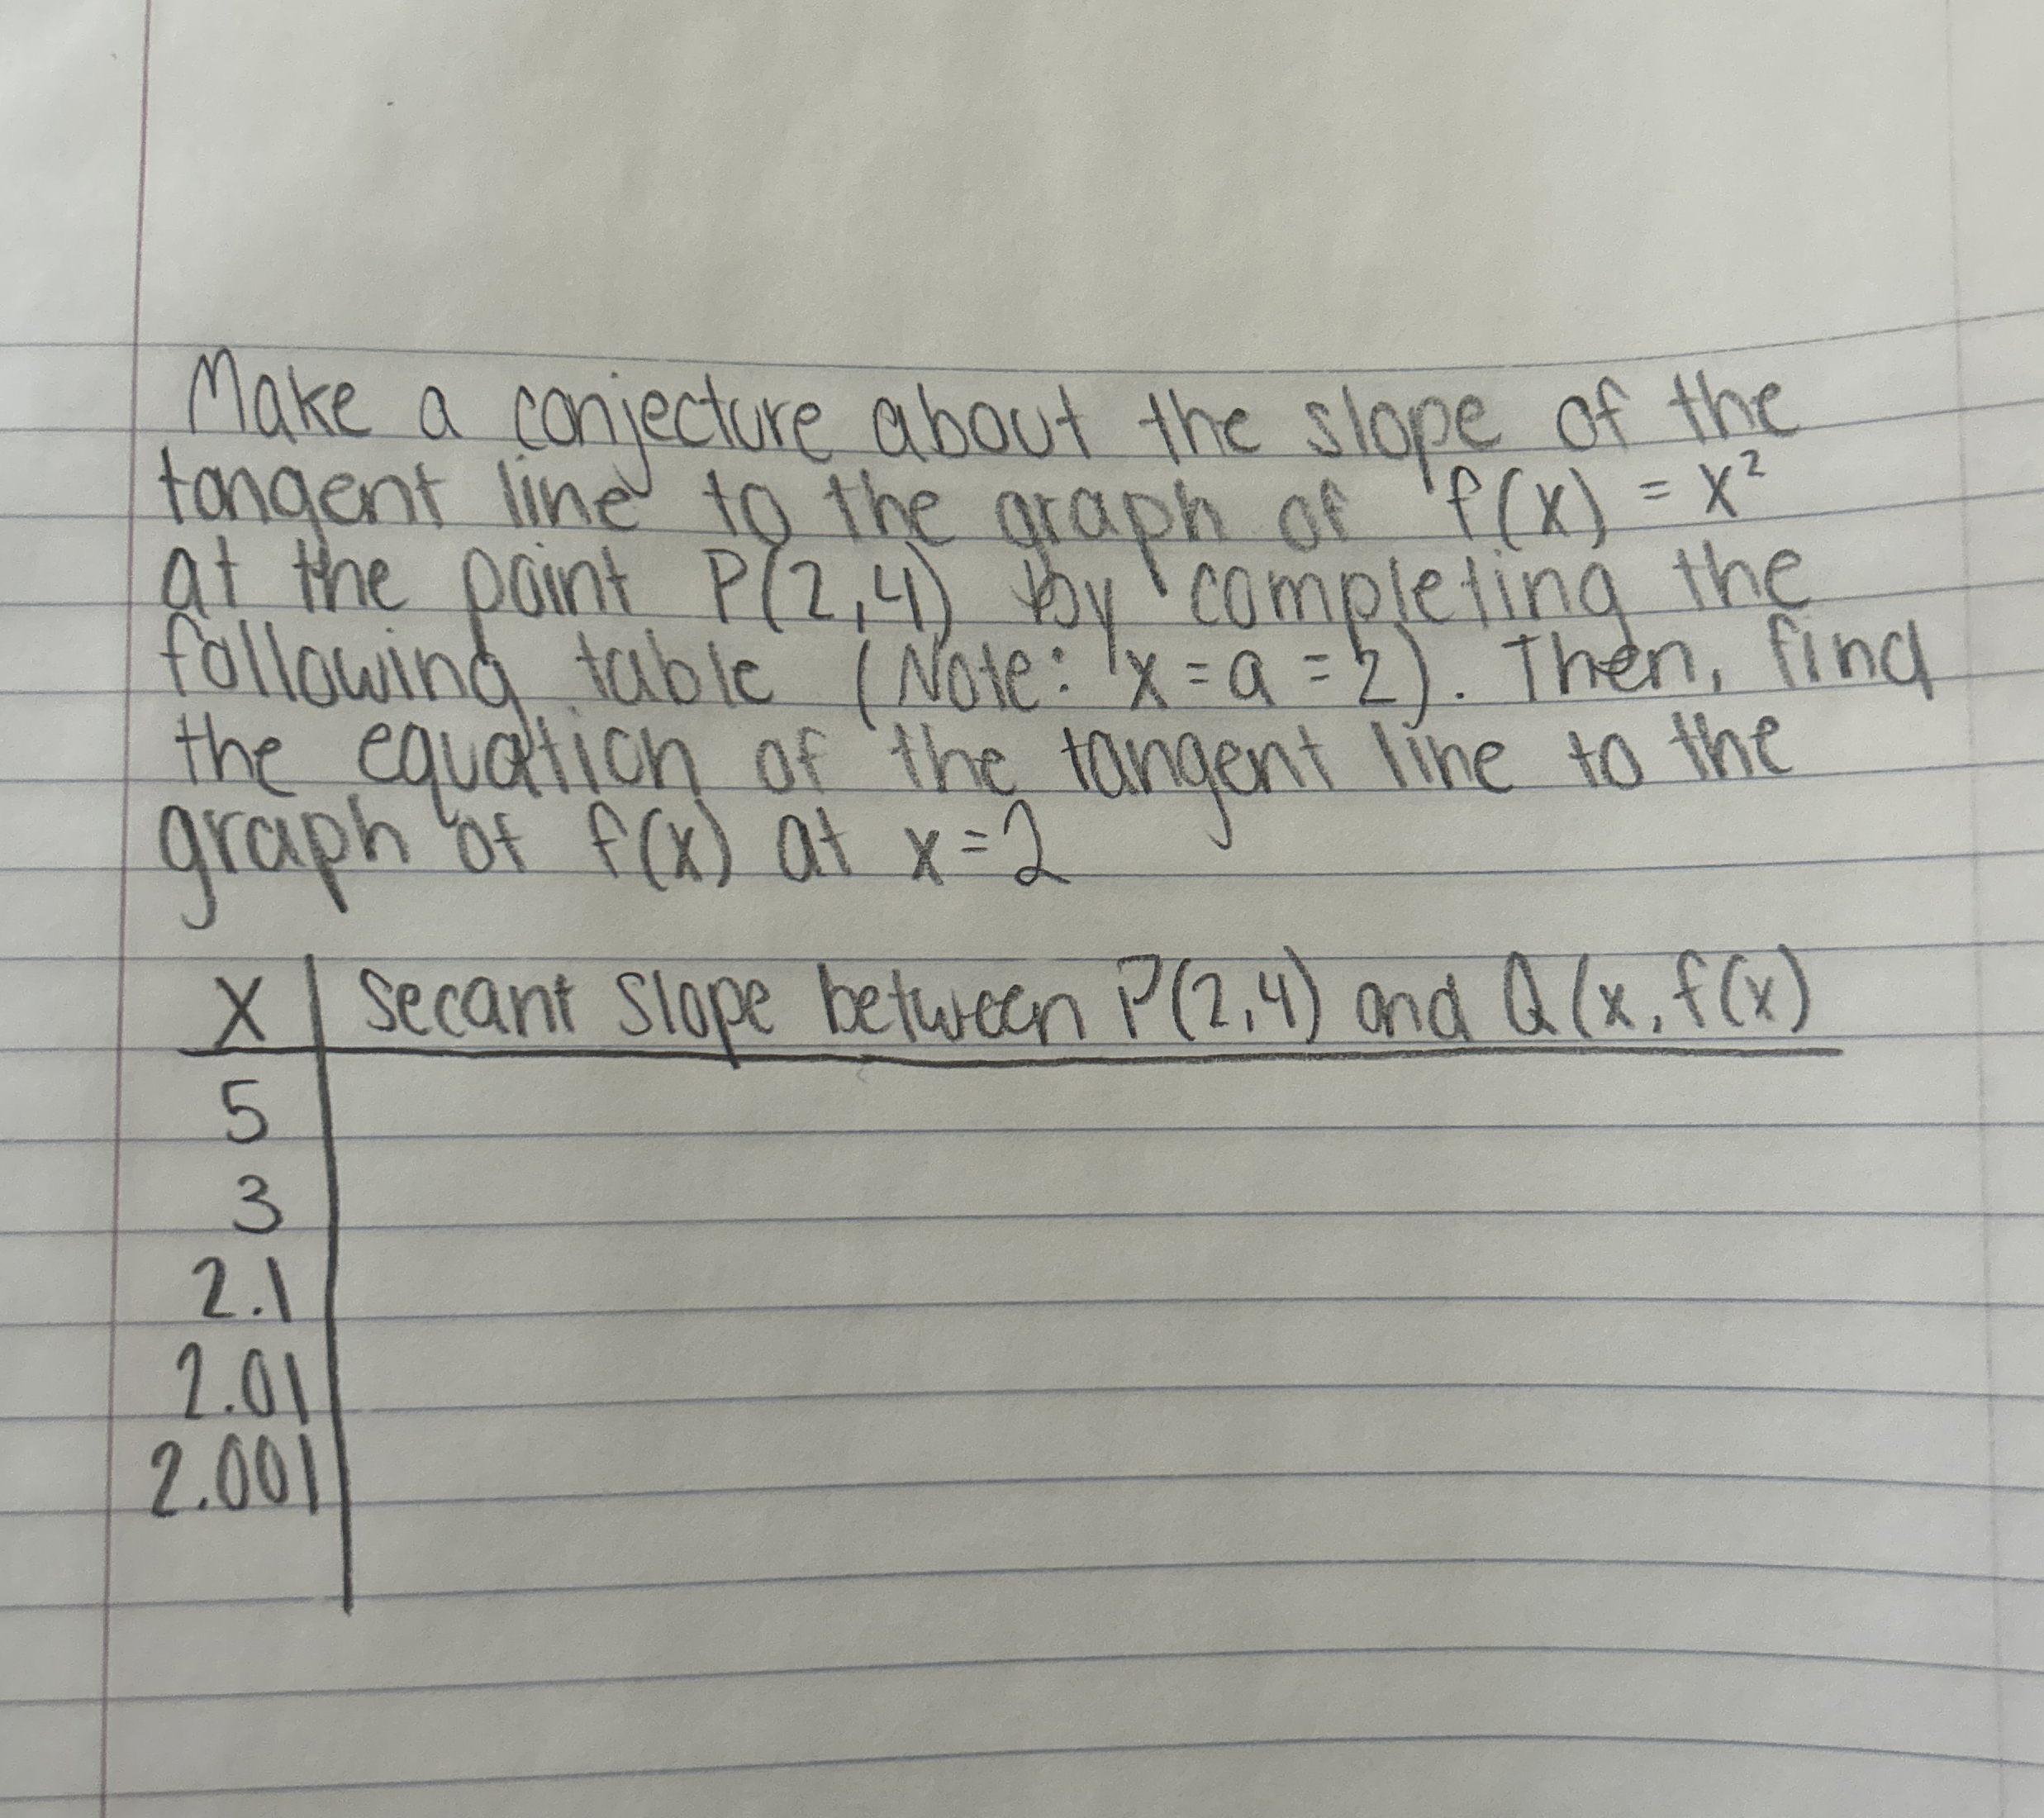 Make a conjecture about the slope of the
tangent line to the graph of f(x) = x²
at the point P(2,4) by completing the
following table (Note: x = a = 2). Then, find
the equation of the tangent line to the
graph of f(x) at x=2
x | Secant slope between P(2,4) and Q(x, f(x)
5
3
2.1
2.01
2.001